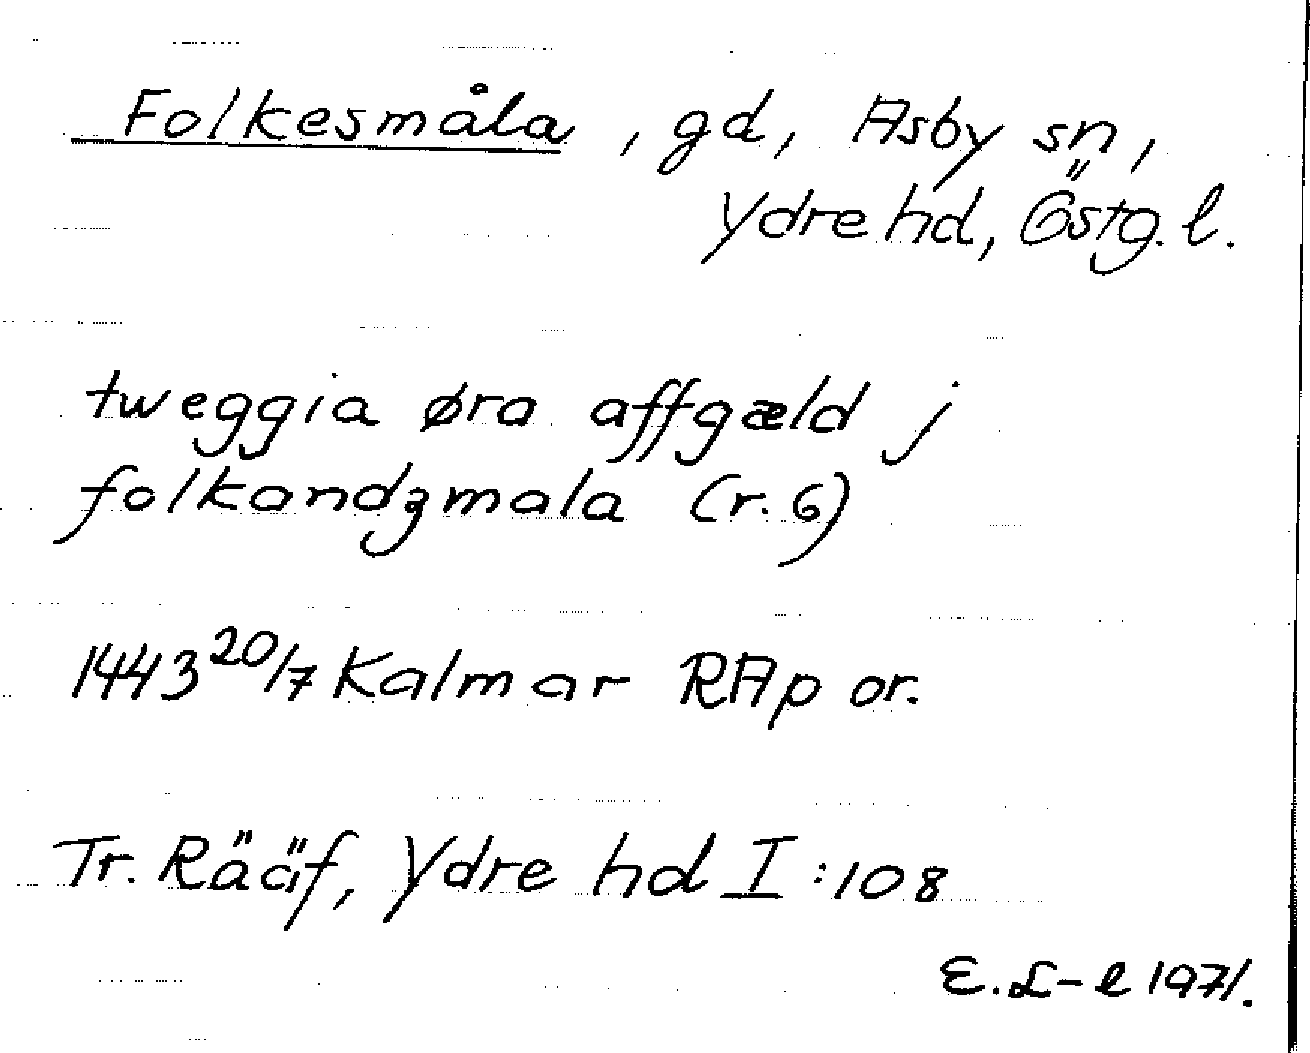 Folkesmåla, gd, Asby sn,
Ydre hd, Östg. l.
tweggia øra affgæld j
folkandzmala (r. 6)
1443 20/7 Kalmar RAp or.
Tr. Rääf, Ydre hd I:108
E. L-l 1971.